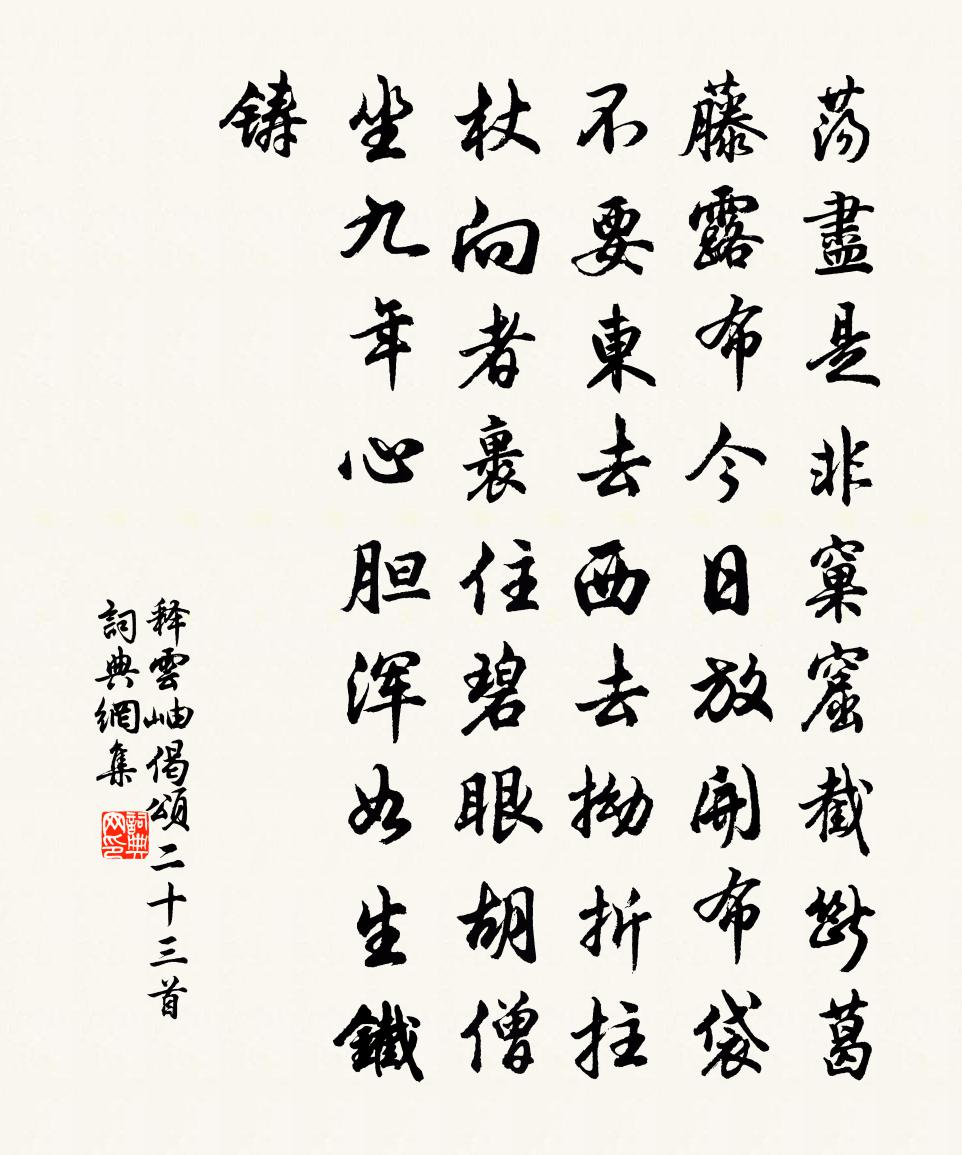 荡盡是非窠窟截斷葛
藤露布今日放開布袋
不要東去西去拗折拄
杖向者裏住碧眼胡僧
坐九年心胆浑如生鐵
鑄
释雲岫偈頌二十三首
詞典網集
詞典
网印